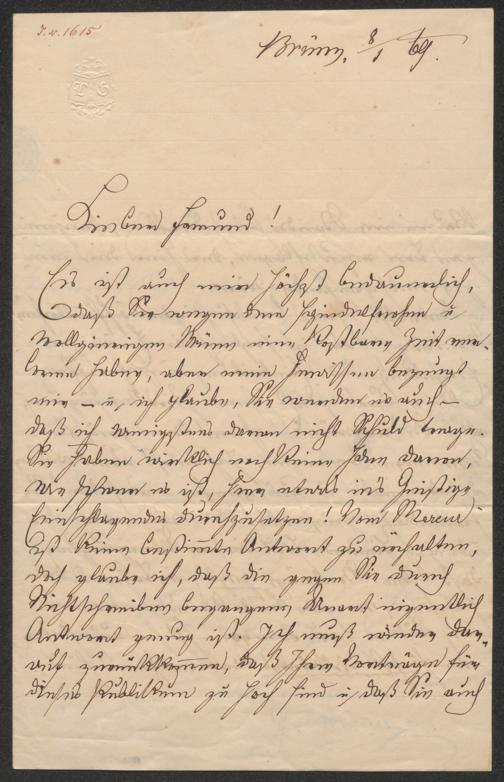 I.N. 1615
Brünn, 8/1 69.
Lieber Freund!
Es ist auch mir höchst bedauerlich,
daß Sie wegen dem u
eine kostbare Zeit ver-
loren haben, aber mein Gewissen bezeugt
mir – u, ich glaube, Sie werden es auch –
daß ich wenigstens daran nicht Schuld trage.
Sie haben wirklich noch keine Idee davon,
wie schwer es ist, hier etwas in's Geistige
Einschlagendes durchzusetzen! Vom
ist keine bestimmte Antwort zu erhalten,
doch glaube ich, daß die gegen Sie durch
Nichtschreiben begangene Unart eigentlich
Antwort genug ist. Ich muß wieder dar-
auf zurückkommen, daß Ihre Vorträge für
dieses Publikum zu hoch sind u, daß Sie auch